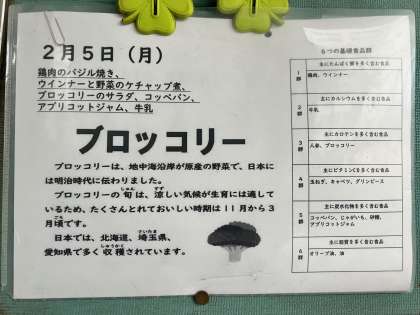 2月5日(月)
鶏肉のバジル焼き、
ウインナーと野菜のケチャップ煮、
ブロッコリーのサラダ、コッペパン、
アプリコットジャム、牛乳
ブロッコリー
ブロッコリーは、地中海沿岸が原産の野菜で、日本に
は明治時代に伝わりました。
ブロッコリーの旬は、涼しい気候が生育には適して
しゅん すず
いるため、たくさんとれておいしい時期は11月から3
月頃です。
ごろ
日本では、北海道、埼玉県、
さいたま
愛知県で多く収穫されています。
しゅうかく
6つの基礎食品群
1群
主にたんぱく質を多く含む食品
鶏肉、ウインナー
2群
主にカルシウムを多く含む食品
牛乳
3群
主にカロテンを多く含む食品
人参、ブロッコリー
4群
主にビタミンCを多く含む食品
玉ねぎ、キャベツ、グリンピース
5群
主に炭水化物を多く含む食品
コッペパン、じゃがいも、砂糖、
アプリコットジャム
6群
主に脂質を多く含む食品
オリーブ油、油